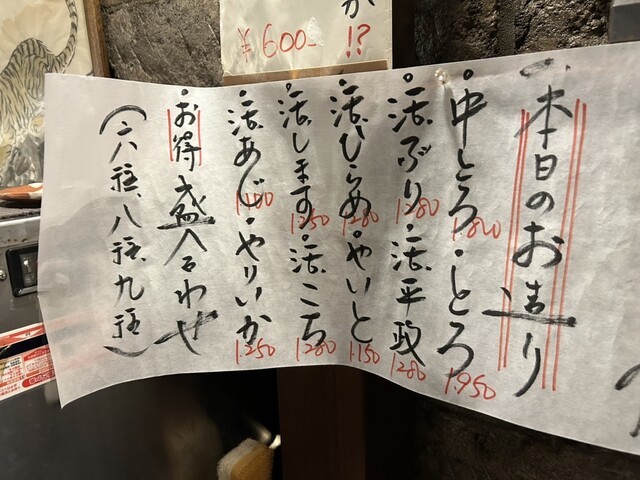 か
!?
¥600-
本日のお造り
・中とろ 1800 ・とろ 1,950
・活ぶり 1280 ・活平政 1280
・活ひらめ 1280 ・やいと 1,150
・活します 1250 ・活こち 1280
・活あじ 1100 ・やりいか 1,250
・お得盛合わせ
(六種、八種、九種)